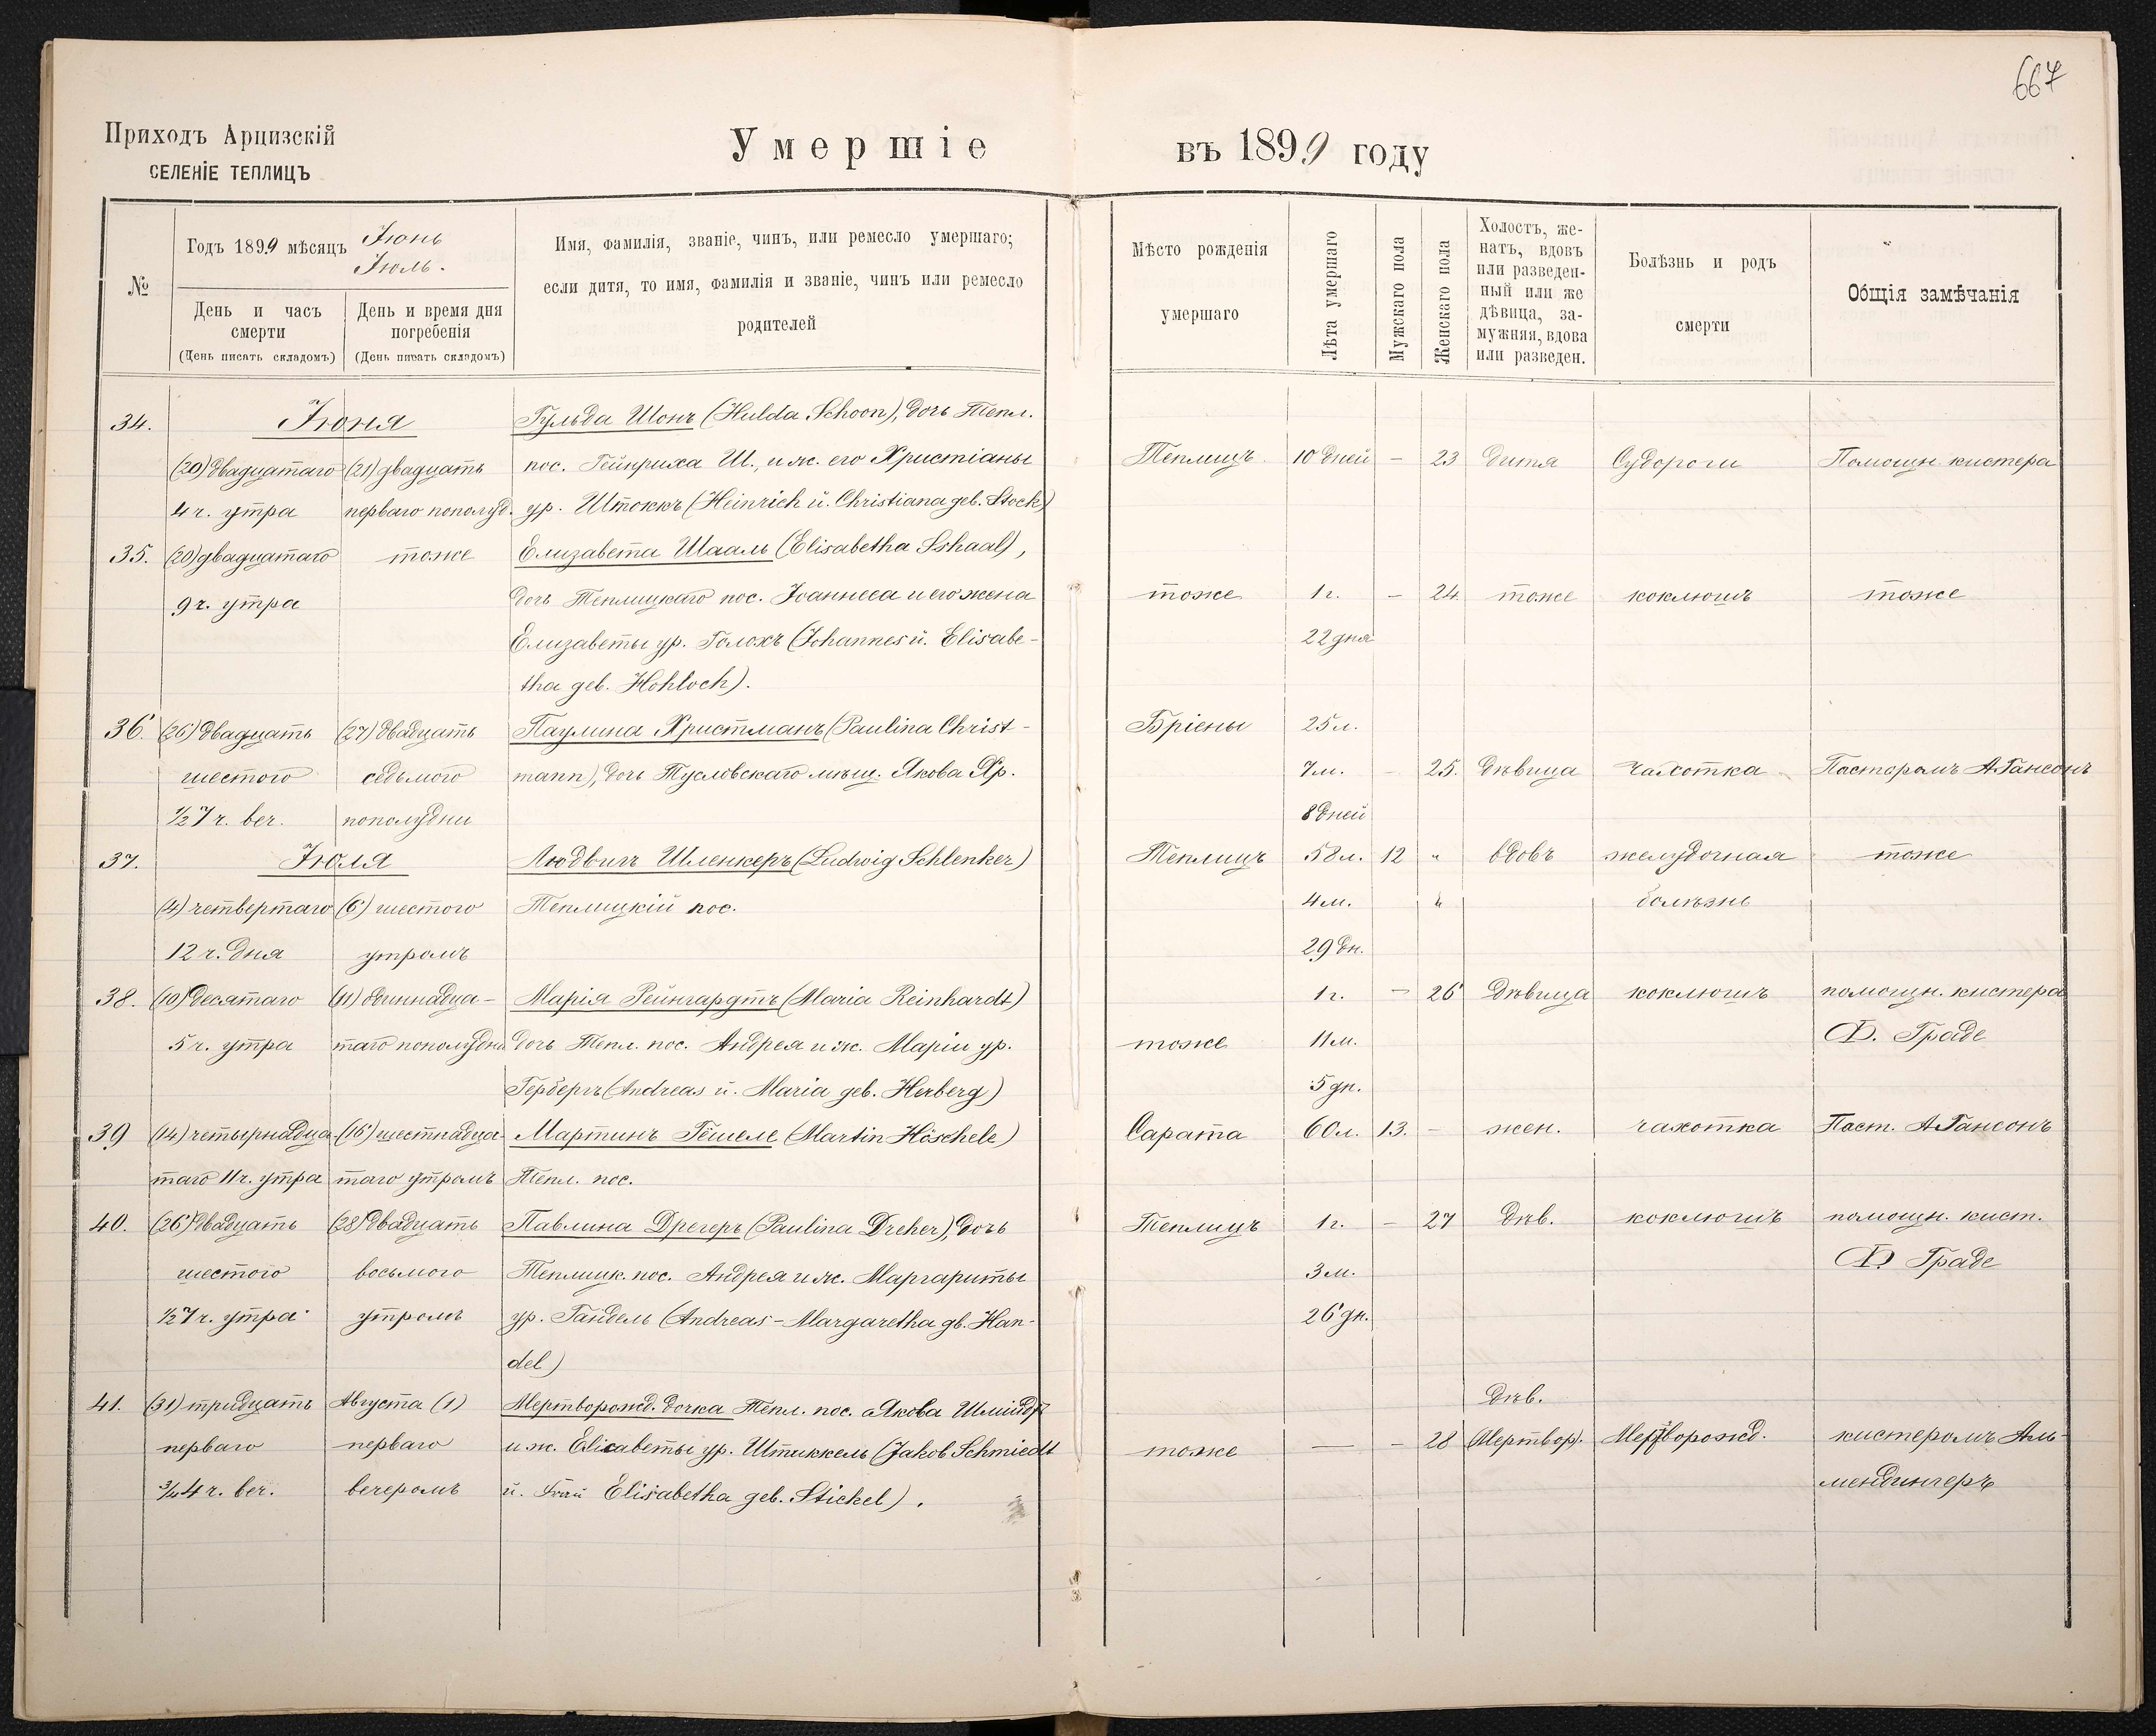 667
Приходъ Арцизскій
СЕЛЕНІЕ ТЕПЛИЦЪ
Умершіе
въ 1899 году
№
Годъ 1899 мѣсяцъ Іюнь
Іюль.
День и часъ смерти
(День писать складомъ)
День и время дня погребенія
(День писать складомъ)
Имя, фамилія, званіе, чинъ, или ремесло умершаго;
если дитя, то имя, фамилія и званіе, чинъ или ремесло
родителей
Мѣсто рожденія
умершаго
Лѣта умершаго
Мужскаго пола
Женскаго пола
Холостъ, же-
натъ, вдовъ
или разведен-
ный или же
дѣвица, за-
мужняя, вдова
или разведен.
Болѣзнь и родъ
смерти
Общія замѣчанія
34. Іюня Гульда Шонъ (Hulda Schoon), дочь Тепл.
(20) двадцатаго (21) двадцать пос. Гейнриха Ш., и ж. его Христіаны Теплицъ 10 дней – 23 дитя Судороги Помощн. кистера
4 ч. утра перваго пополуд. ур. Штоккъ (Heinrich ü. Christiana geb. Stock)
35. (20) двадцатаго тоже Елизавета Шааль (Elisabetha Sshaal),
9 ч. утра дочь Теплицкаго пос. Іоаннеса и его жена тоже 1 г. – 24. тоже коклюшъ тоже
Елизаветы ур. Голохъ (Johannes ü. Elisabe- 22 дня
tha geb. Hohloch).
36. (26) двадцать (27) двадцать Паулина Христманъ (Paulina Christ- Бріены 25 л.
шестого седьмого mann), дочь Тусловскаго мѣщ. Якова Хр. 7 м. – 25. Дѣвица Чахотка Пасторомъ А. Гансонъ
1/2 7 ч. веч. пополудни 8 дней
37. Іюля Людвигъ Шленкеръ (Ludwig Schlenker) Теплицъ 58 л. 12 " вдовъ желудочная тоже
(4) четвертаго (6) шестого Теплицкій пос. 4 м. " болѣзнь
12 ч. дня утромъ 29 дн.
38. (10) десятаго (11) одиннадца- Марія Рейнгардтъ (Maria Reinhardt) 1 г. – 26 Дѣвица коклюшъ помощн. кистера
5 ч. утра таго пополудни дочь Тепл. пос. Андрея и ж. Маріи ур. тоже 11 м. Ф. Граде
Гербергъ (Andreas ü. Maria geb. Herberg) 5 дн.
39 (14) четырнадца- (16) шестнадца- Мартинъ Гёшеле (Martin Höschele) Сарата 60 л. 13. – жен. чахотка Паст. А. Гансонъ
таго 11 ч. утра таго утромъ Тепл. пос.
40. (26) двадцать (28) двадцать Павлина Дрегеръ (Paulina Dreher), дочь Теплицъ 1 г. – 27 Дѣв. коклюшъ помощн. кист.
шестого восьмого Теплицк. пос. Андрея и ж. Маргариты 3 м. Ф. Граде
1/2 7 ч. утра утромъ ур. Гандель (Andreas – Margaretha gb. Han- 26 дн.
del)
41. (31) тридцать Августа (1) Мертворожд. дочка Тепл. пос. Якова Шмидт Дѣв.
перваго перваго и ж. Elисаветы ур. Штиккель (Jakob Schmiedt тоже — – 28 (Мертвор). Мертворожд. кистеромъ Аль-
3/4 4 ч. веч. вечеромъ ü. Frau Elisabetha geb. Stickel). мендингеръ